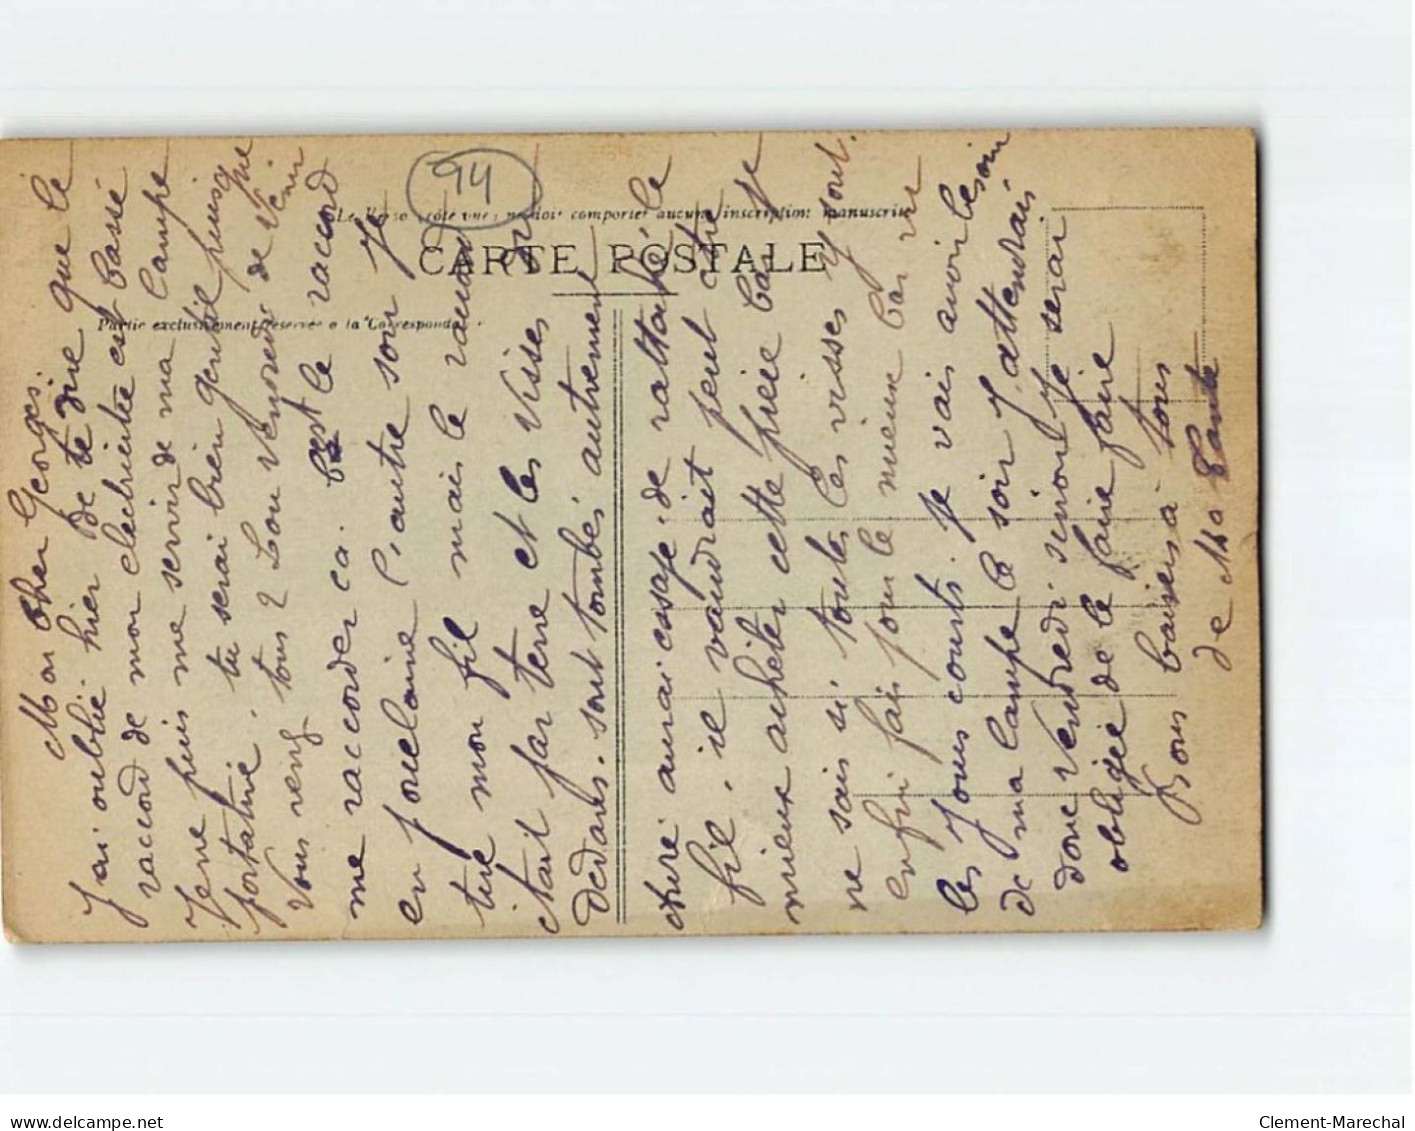 94
Le Verso (côté vue) ne doit comporter aucune inscription manuscrite
CARTE POSTALE
Partie exclusivement réservée à la Correspondance
Mon cher Georges.
J'ai oublié hier de te dire que le
raccord de mon électricitée est cassé
Je ne puis me servir de ma lampe
portative. tu serai bien gentil puisque
vous venez tous 2 Lou Vendredi de venir
me raccorder ca. C'est le raccord
en porcelaine l'autre soir Je
tire mon fil mais le raccord
était par terre et les visses
dedans. sont tombés autrement
aurai essaje de rattaché le
fil. il vaudrait peut etre
mieux acheter cette pièce car je
ne sais si toutes les visses y sont.
enfin fais pour le mieux car
les jours courts. Je vais avoir besoin
de ma lampe le soir J'attendrais
donc Vendredi sinon Je serai
obligée de le faire faire
Bons baisers à tous
de Ma Tante
Clement-Marechal